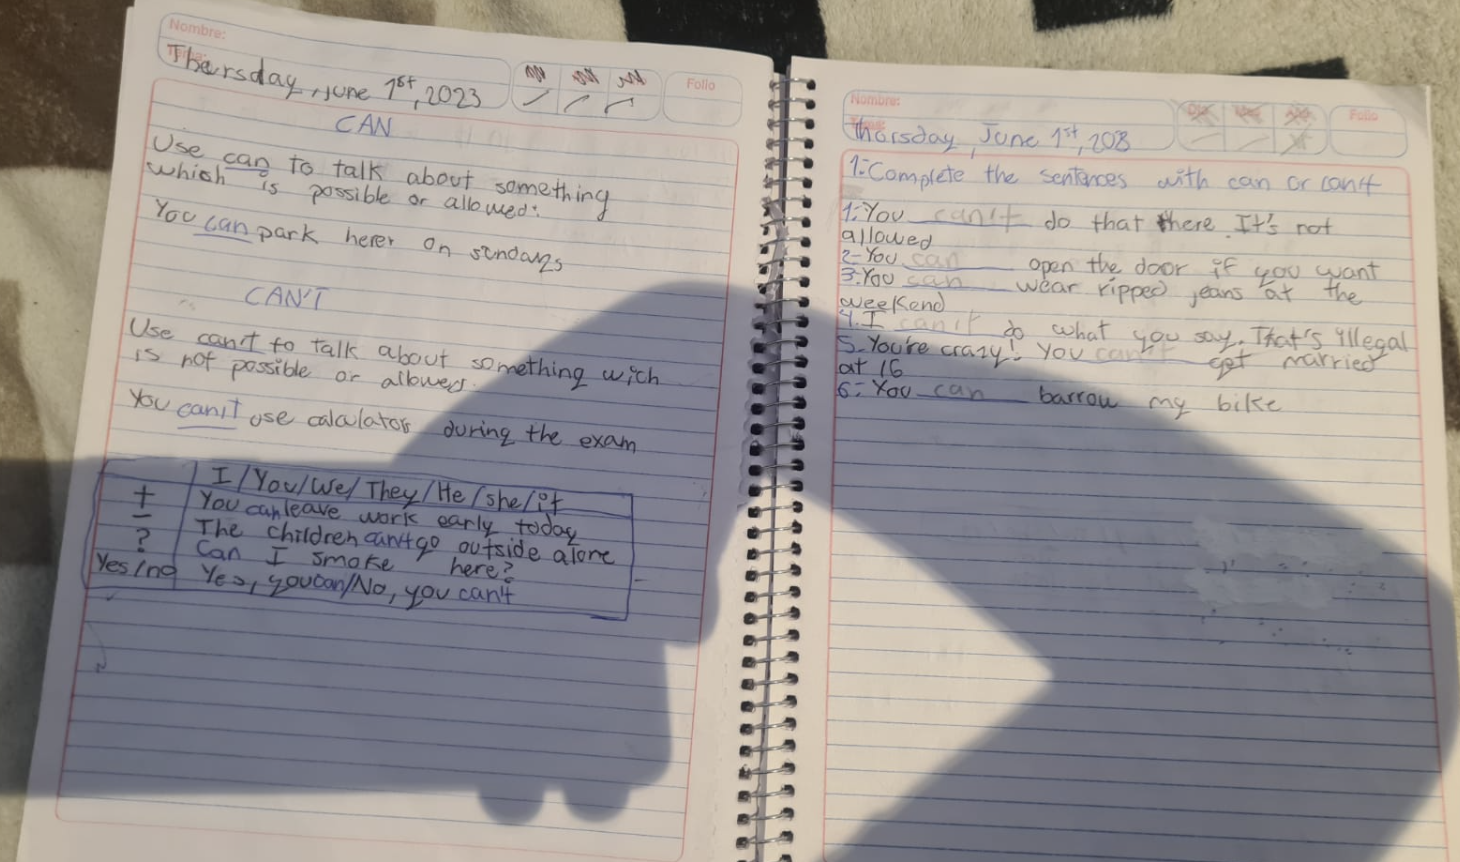 Nombre:
Thersday, june 1st, 2023
Folio
CAN
Use can to talk about something
which is possible or allowed:
You can park herer on sundays
CAN'T
Use can't to talk about something wich
is not possible or allowed.
You can't use calculators during the exam
I/You/We/They/He/she/it
+ You can leave work early today
- The children can't go outside alone
? Can I smoke here?
Yes/no Yes, you can/No, you can't
Nombre:
Thorsday, June 1st, 203
Folio
1:-Complete the sentences with can or can't
1:-You can't do that there. It's not
allowed
2-You can open the door if you want
3.You can wear ripped jeans at the
weekend
4.I can't do what you say. That's illegal
5.-You're crazy! You can't get married
at 16
6:-You can barrow my bike